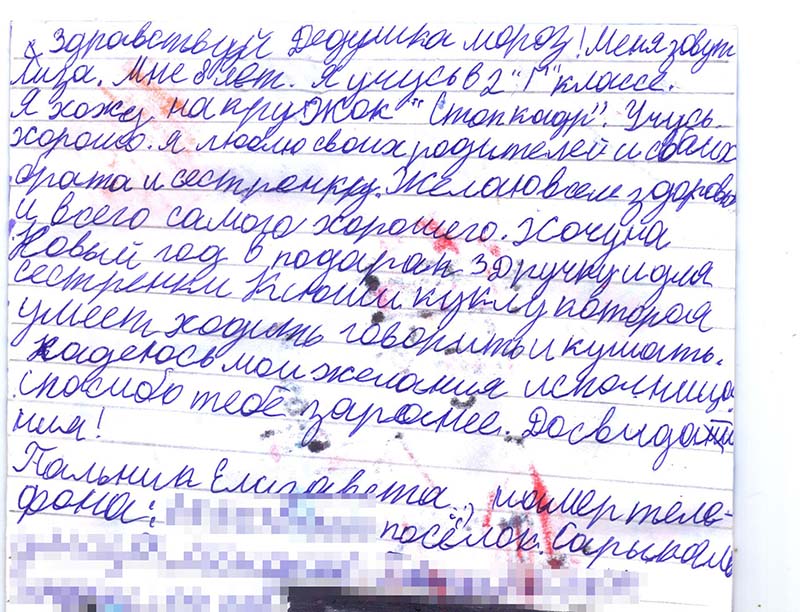 Здравствуй Дедушка мороз! Меня зовут
Лиза. Мне 8 лет. Я учусь в 2 "Г" классе.
Я хожу на кружок "Стопкадр". Учусь
хорошо. Я люблю своих родителей и своих
брата и сестренку. Желаю всем здоровья
и всего самого хорошего. Хочу на
Новый год в подарак 3D ручку и для
сестренки Ксюши куклу которая
умеет ходить говорить и кушать.
Надеюсь мои желания исполница.
спосибо тебе заранее. Досвидати
ния!
Пальник Елизавета номер теле-
фона:
посёлок. Сарыкаль